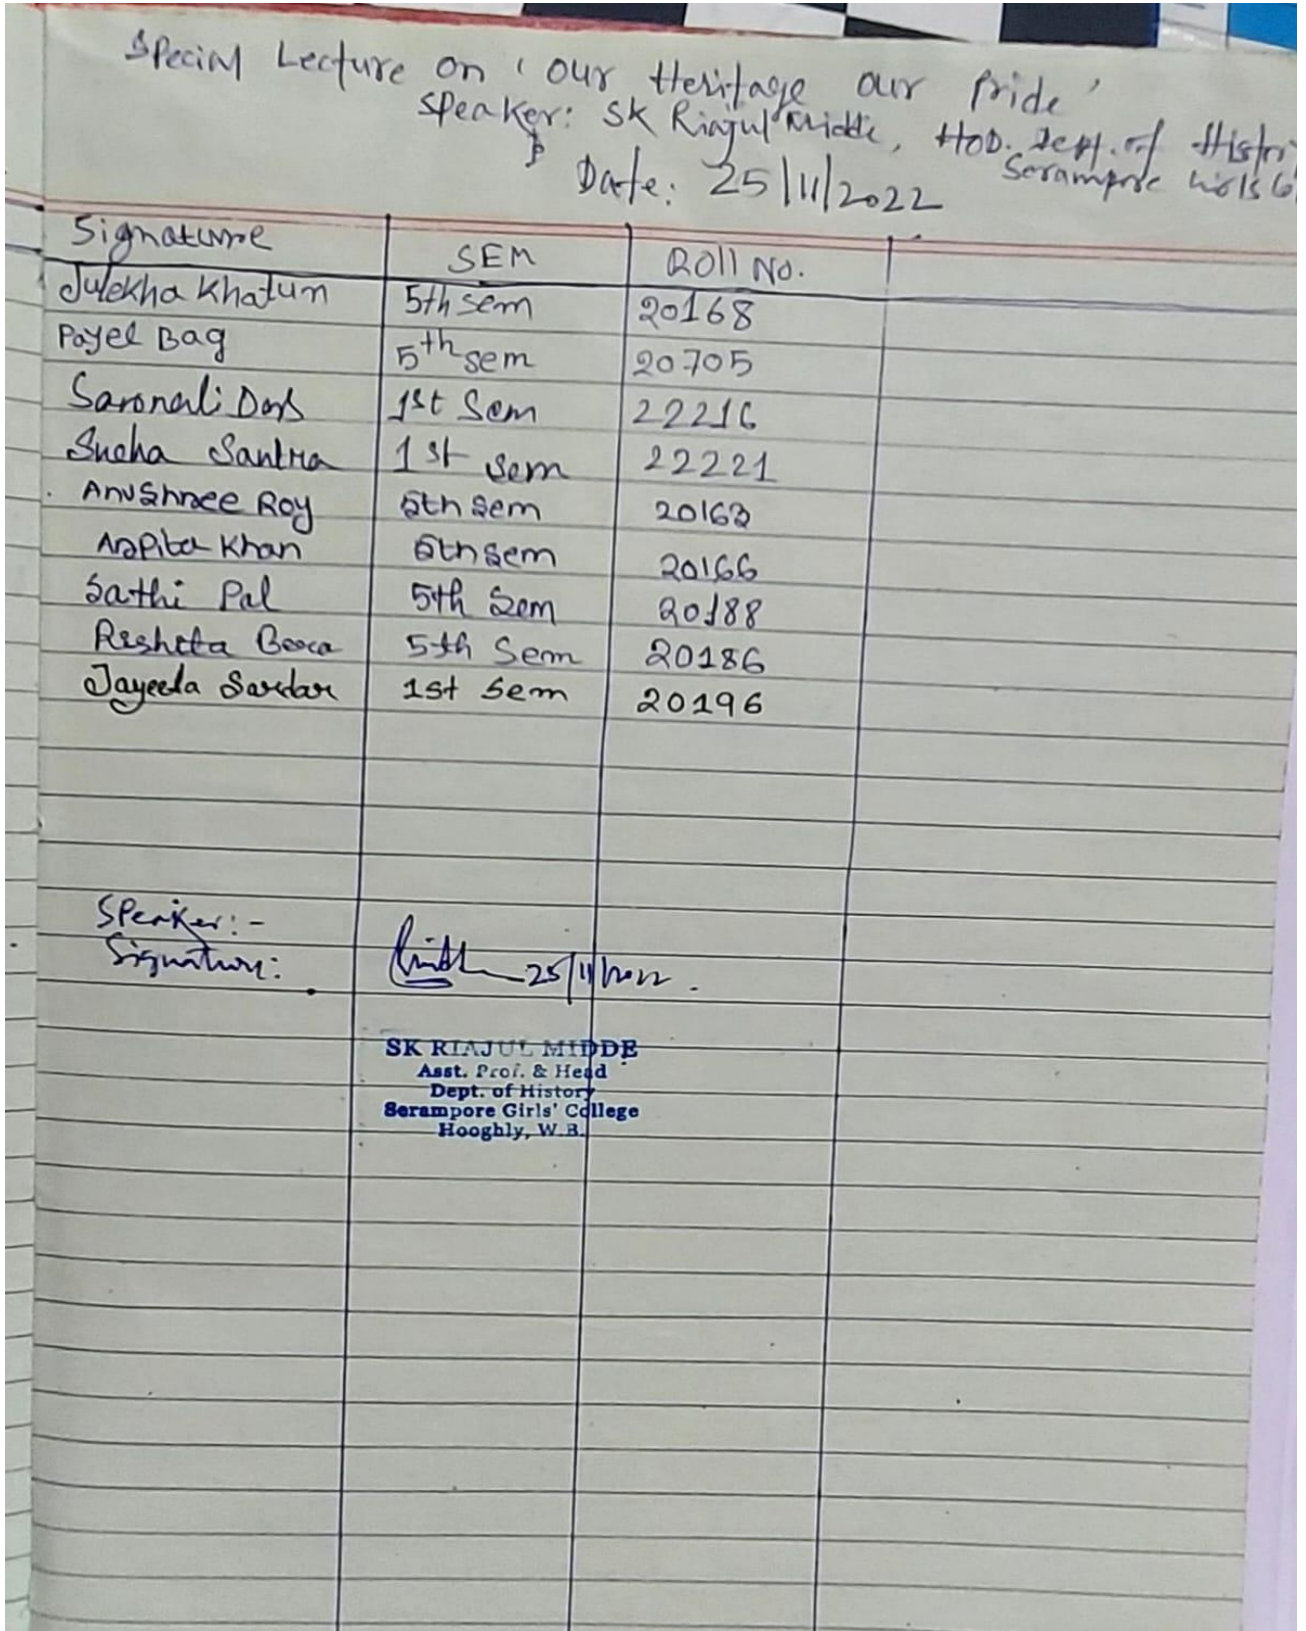 Special Lecture on 'Our Heritage Our Pride'
Speaker: SK Riajul Midde, HOD. Dept. of Histri
Serampore Girls Co
Date: 25/11/2022
Signature SEM Roll No.
Julekha Khatun 5th sem 20168
Payel Bag 5th sem 20705
Saronali Das 1st Sem 22216
Sneha Santra 1st sem 22221
Anushree Roy 5th sem 20163
Arpita Khan 5th sem 20166
Sathi Pal 5th Sem 20188
Rishita 5th Sem 20186
Jayeeta Sardar 1st Sem 20196
Speaker:-
Signature: 25/11/2022.
SK RIAJUL MIDDE
Asst. Prof. & Head
Dept. of History
Serampore Girls' College
Hooghly, W.B.